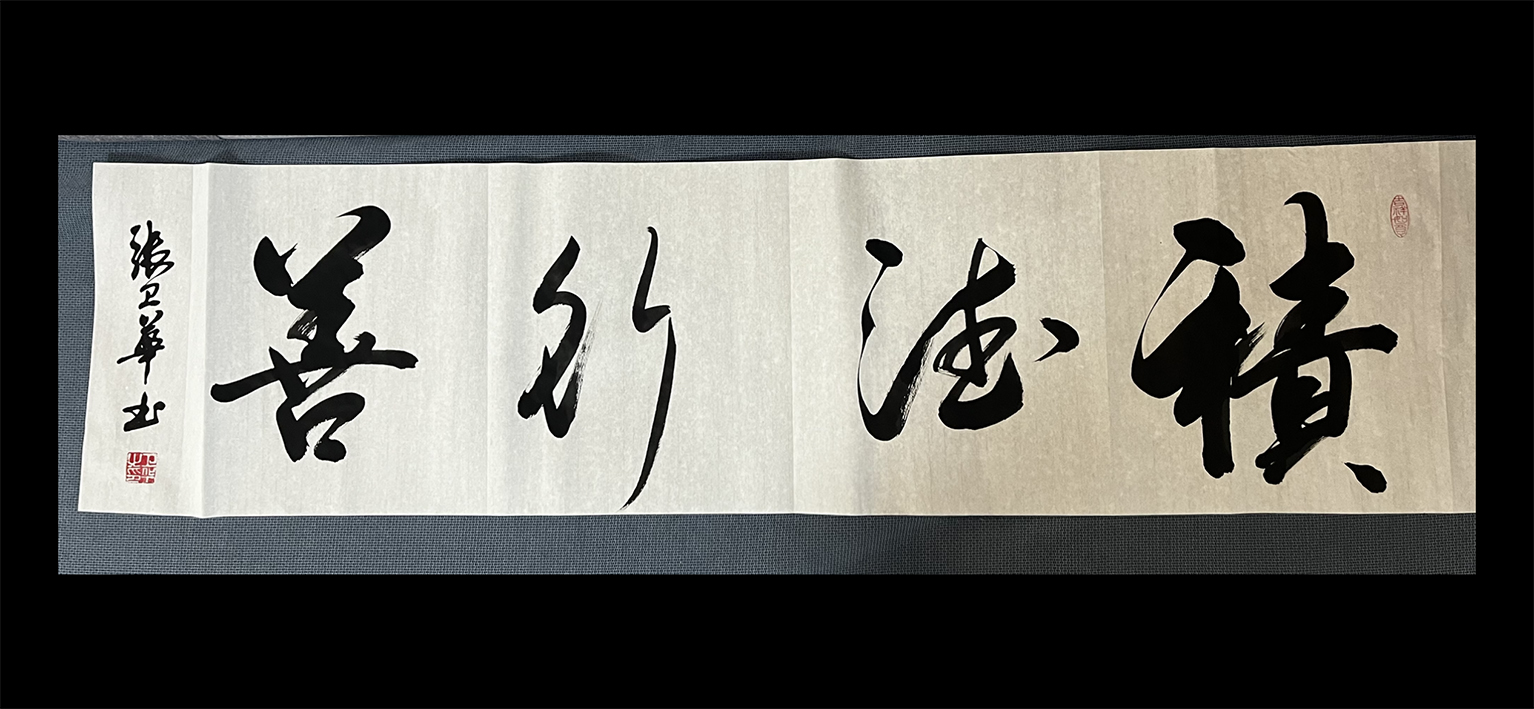 積德行善
張卫華书